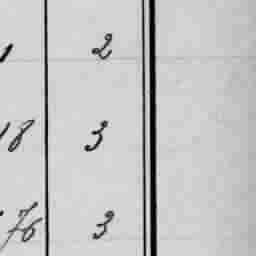 2
18 3
76 3